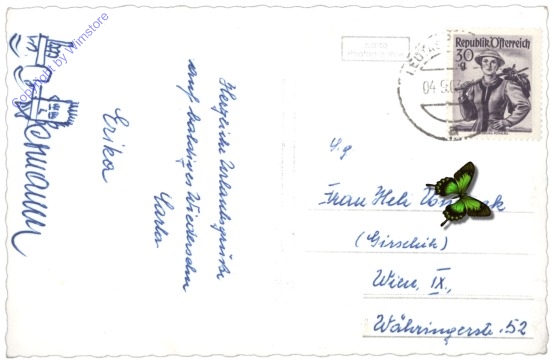 Copyright by Wimstore
Herzliche Urlaubsgrüße
auf baldiges Wiedersehn
Carla
Erika
Republik Österreich
30
g
04.9.
S.g
Frau Heli
(Girschik)
Wien, IX.,
Währingerstr. 52